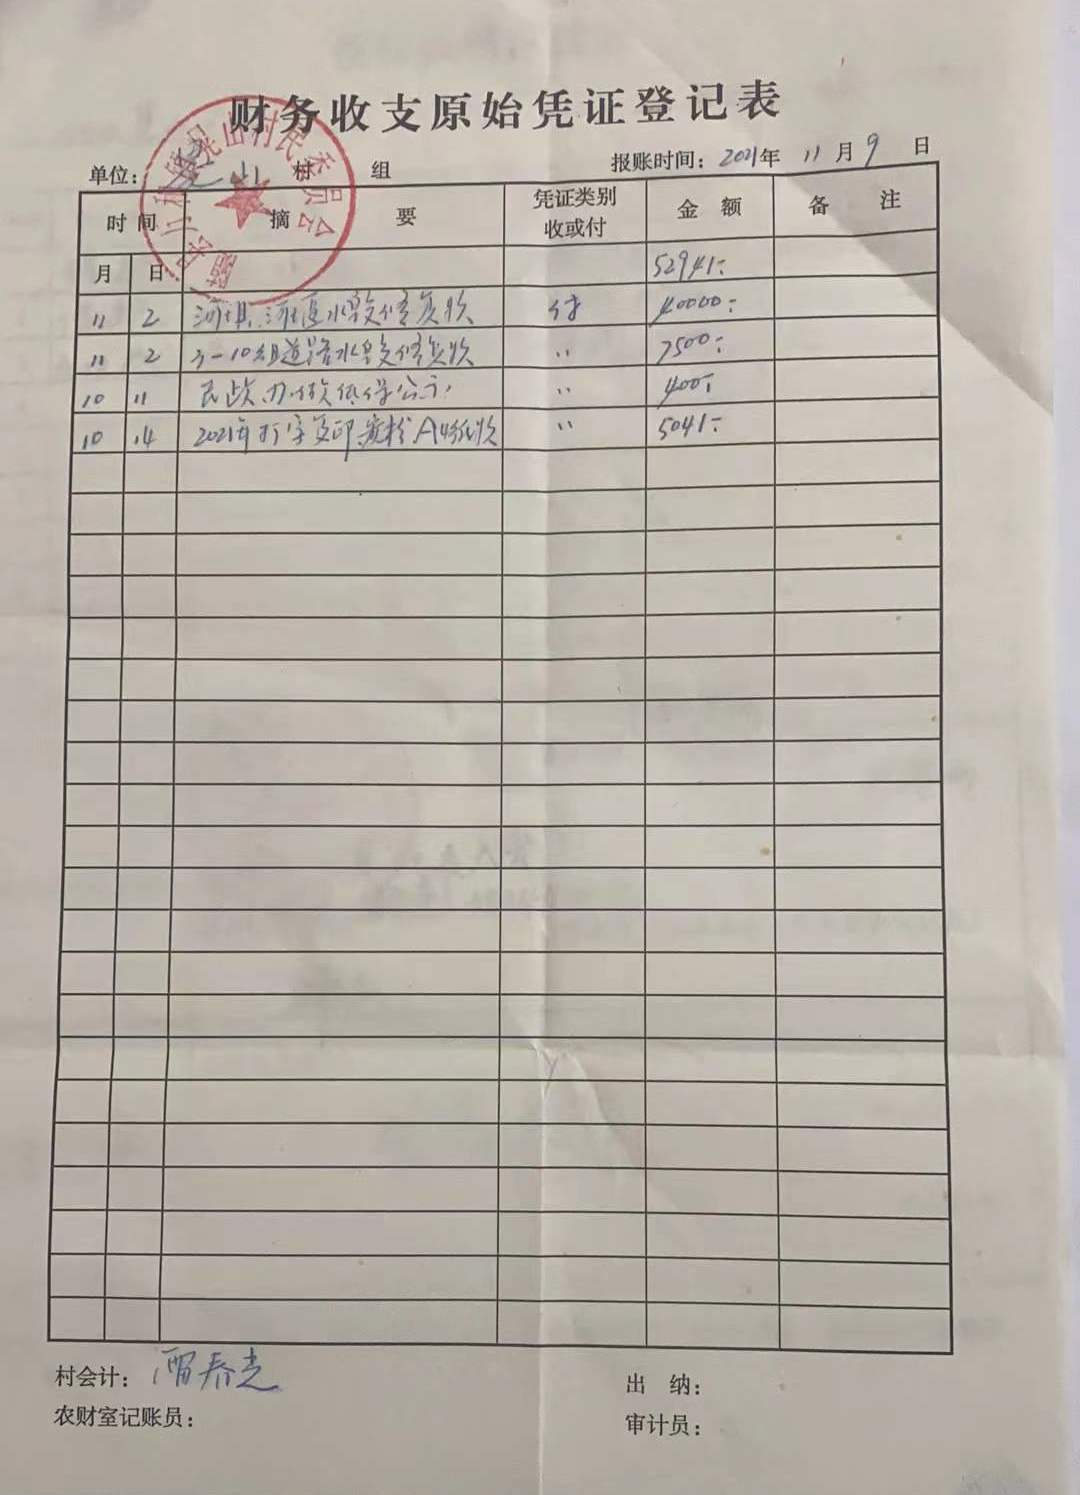 财务收支原始凭证登记表
单位： 村 组 报账时间：2021年 11月9日
时间 摘要 凭证类别 收或付 金额 备注
月 日 52941:
11 2 水毁修复 付 40000:
11 2 -10组道路水毁修复 〃 7500:
10 11 民政办做低保公示 〃 400:
10 14 2021年打字复印 A4纸 〃 5041:
村会计： 出纳：
农财室记账员： 审计员：